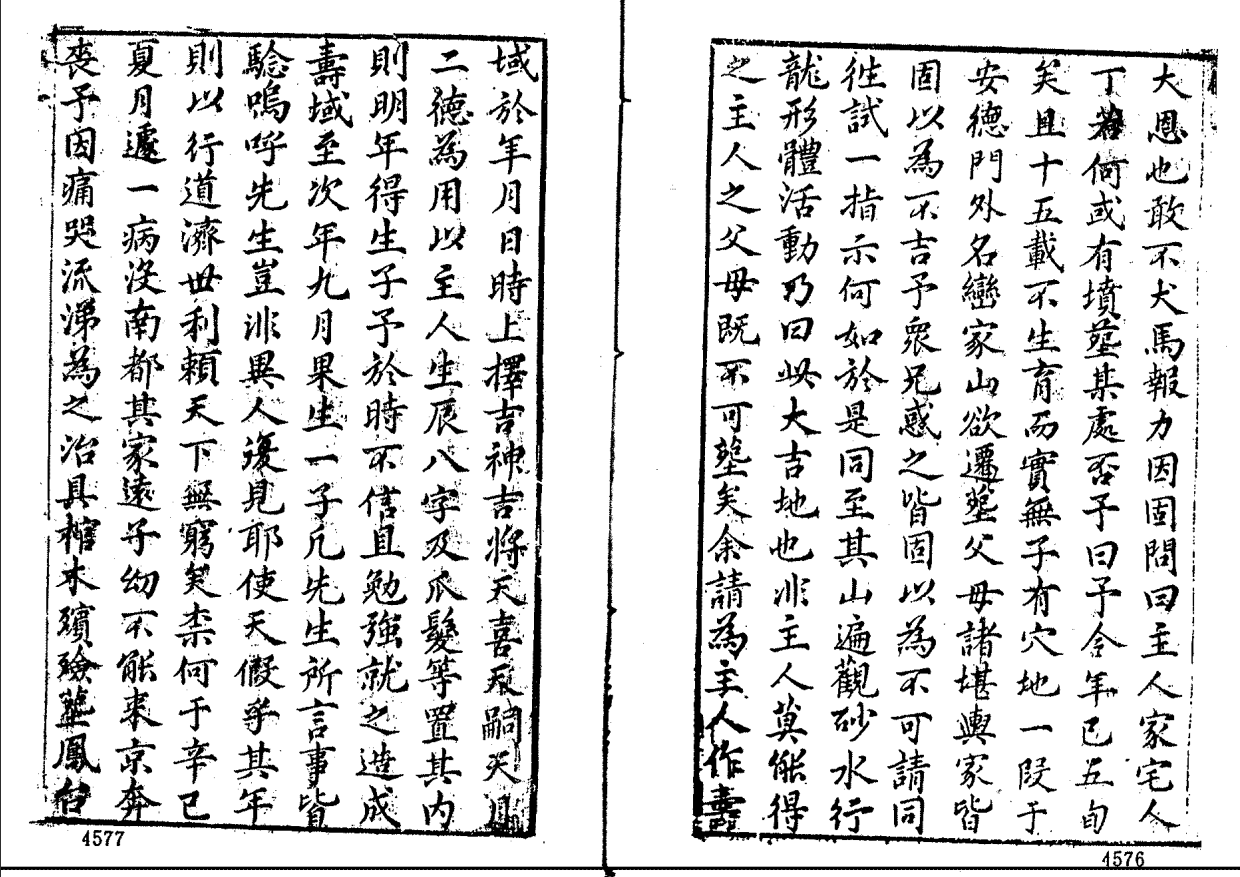 大恩也敢不犬馬報力因固問曰主人家宅人
丁若何或有墳塋某處否予曰予今年已五旬
矣且十五載不生育而實無子有穴地一段于
安德門外名巒家山欲遷塋父母諸堪輿家皆
固以為不吉予衆兄惑之皆固以為不可請同
徃試一指示何如於是同至其山遍觀砂水行
龍形體活動乃曰此大吉地也非主人莫能得
之主人之父母既不可塋矣余請為主人作壽
4576
域於年月日時上擇吉神吉將天喜天嗣天月
二德為用以主人生辰八字及爪髮等置其内
則明年得生子予於時不信且勉強就之造成
壽域至次年九月果生一子凡先生所言事皆
驗嗚呼先生豈非異人復見耶使天假乎其年
則以行道濟世利賴天下無窮矣柰何于辛巳
夏月遽一病沒南都其家遠子幼不能来京奔
喪予因痛哭流涕為之治具棺木殯殮塟鳳台
4577